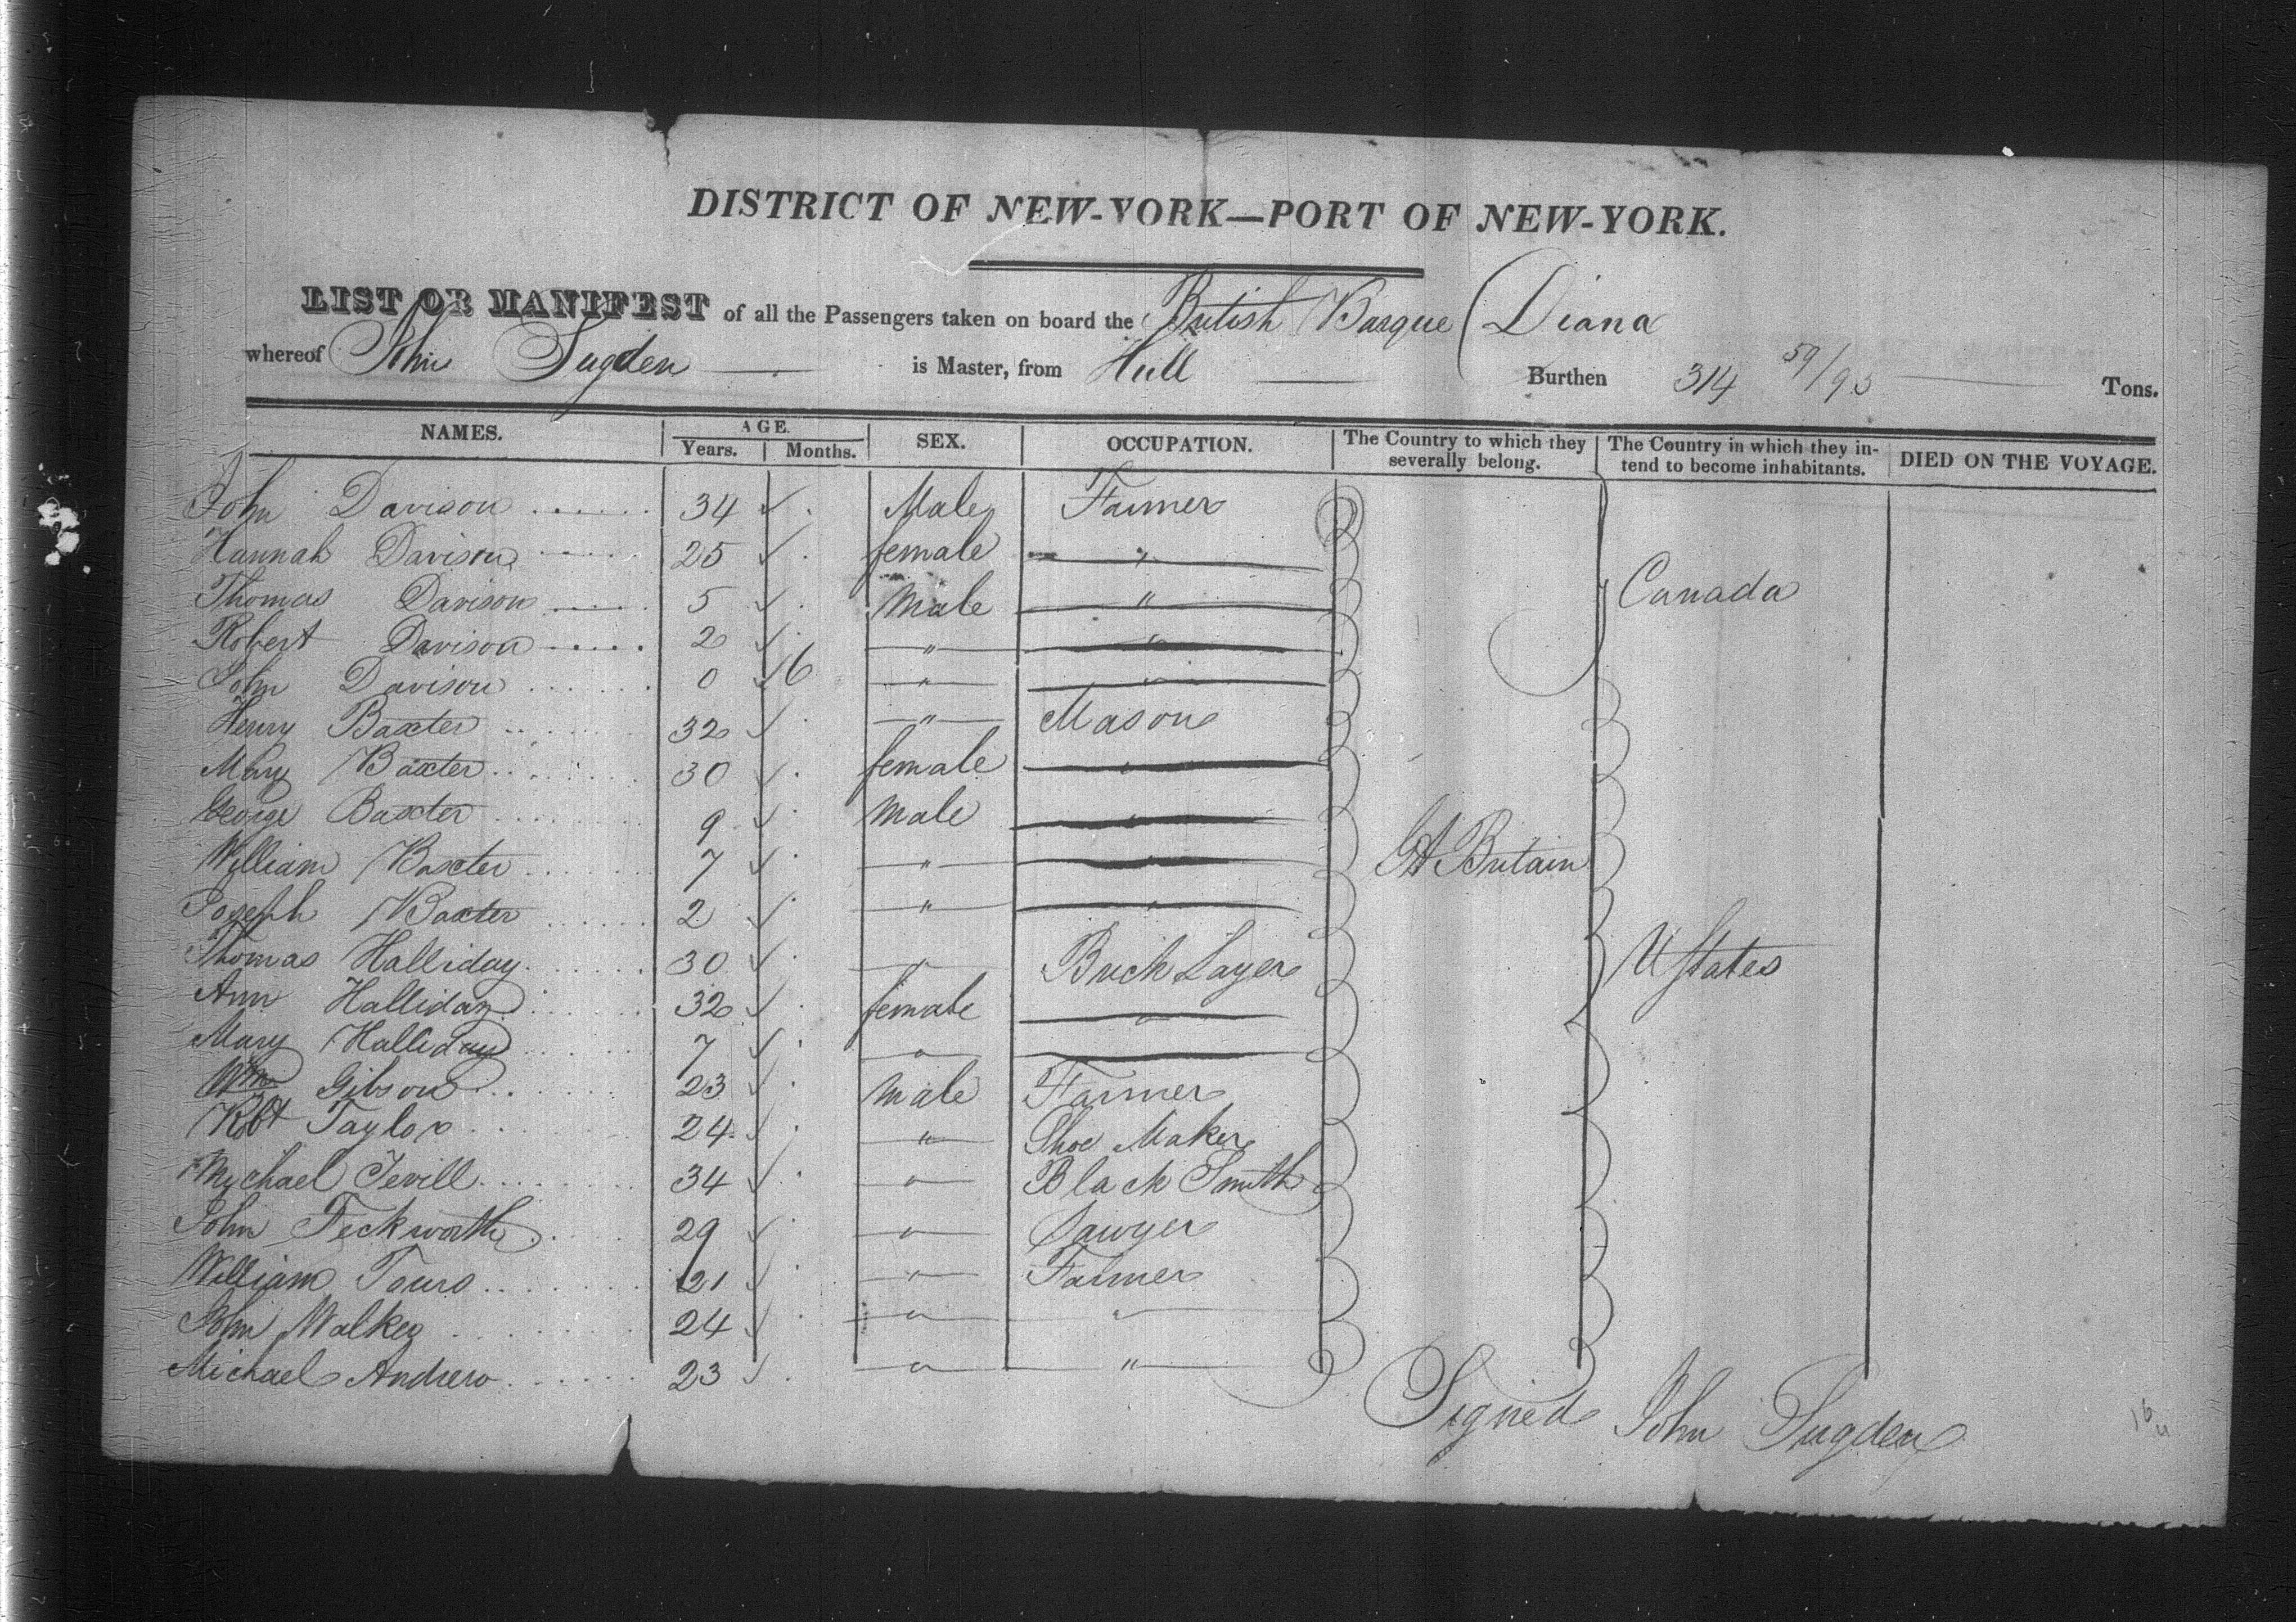 DISTRICT OF NEW-YORK—PORT OF NEW-YORK.
LIST OR MANIFEST of all the Passengers taken on board the British Barque Diana
whereof John Sugden is Master, from Hull Burthen 314 59/95 Tons.
NAMES. AGE. Years. Months. SEX. OCCUPATION. The Country to which they severally belong. The Country in which they intend to become inhabitants. DIED ON THE VOYAGE.
John Davison 34 Male Farmer
Hannah Davison 25 female "
Thomas Davison 5 Male " Canada
Robert Davison 2 " "
John Davison 0 6 " "
Henry Baxter 32 " Mason
Mary Baxter 30 female "
George Baxter 9 male "
William Baxter 7 " " Gt Britain
Joseph Baxter 2 " "
Thomas Halliday 30 " Brick Layer U States
Ann Halliday 32 female "
Mary Halliday 7 "
Wm Gibson 23 male Farmer
Robt Taylor 24 " Shoe Maker
Michael 34 " Black Smith
John Teckworth 29 " Sawyer
William 21 " Farmer
John Walker 24 " "
Michael Andrew 23 " "
Signed John Sugden